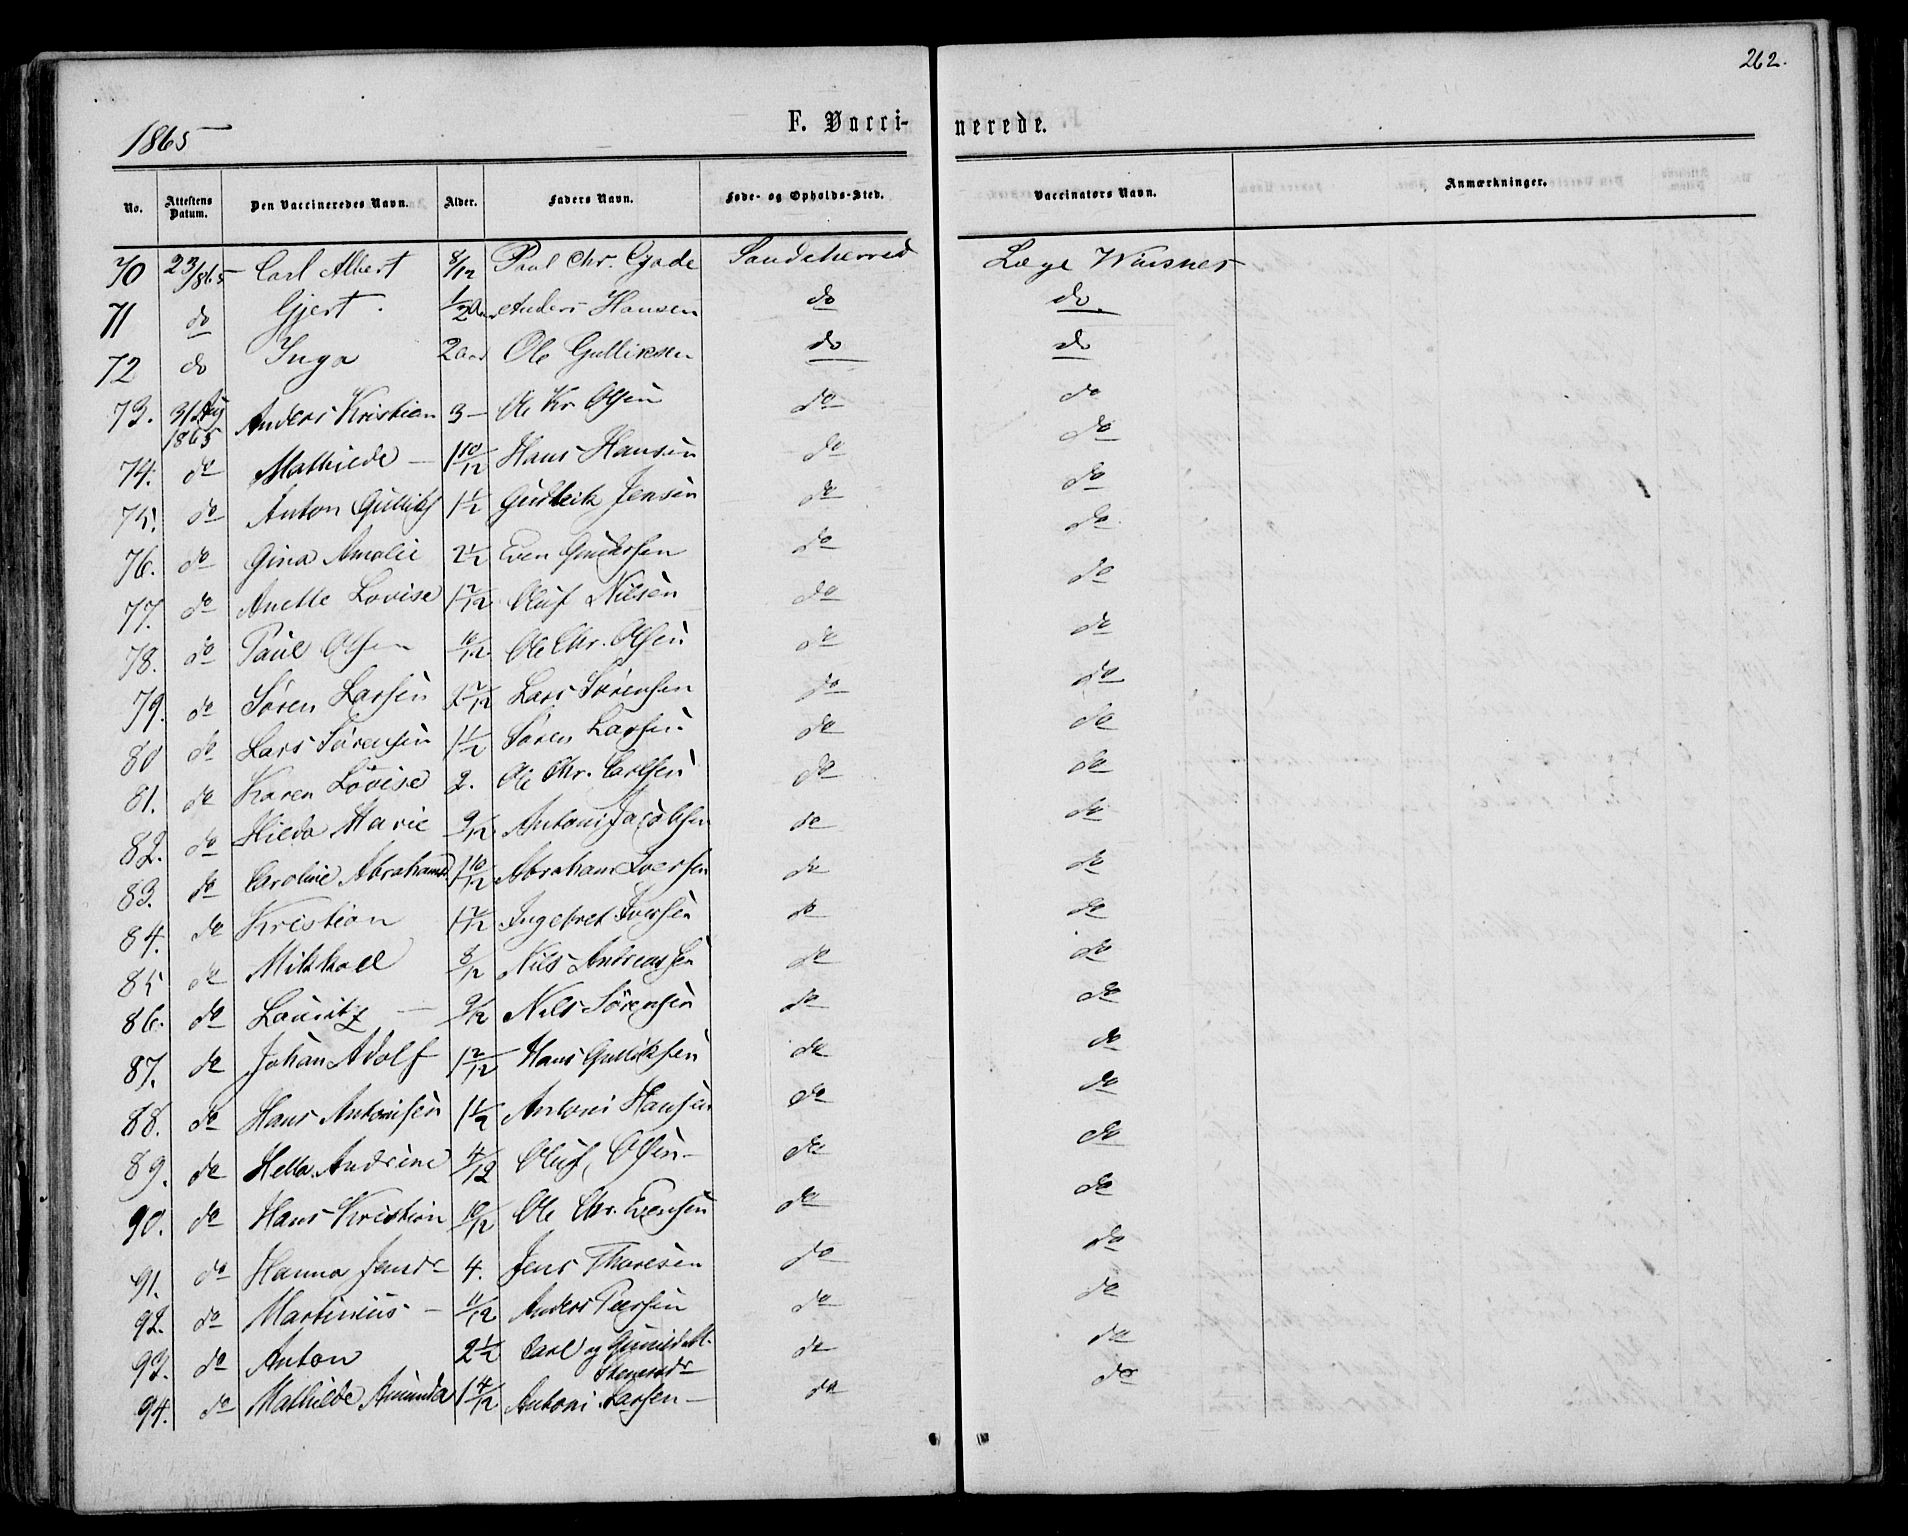 262.
1865
F. Vacci-
nerede.
No. Attestens Datum. Den Vaccineredes Navn. Alder. Faders Navn. Føde- og Opholds-Sted. Vaccinators Navn. Anmærkninger.
70 23/865 Carl Albert 8/12 Paul Chr. Gjade Sandeherred Læge Wusnes
71 do Gjert. 1/2 Anders Hansen do do
72 do Inga 2 aar Ole Gulliksen do do
73. 31 Aug 1865 Anders Kristian 3- Ole Kr. Olsen do do
74. do Mathilde - 1 10/12 Hans Hansen do do
75. do Anton Gulliks 1 1/2 Gullik Jensen do do
76. do Gina Amalie 2 1/2 Even do do
77. do Anette Lovise 1 7/12 Oluf Nilsen do do
78. do Paul Olsen 10/12 Ole Chr. Olsen do do
79. do Søren Larsen 1 7/12 Lars Sørensen do do
80 do Lars Sørensen 1 1/2 Søren Larsen do do
81. do Karen Lovise 2. Ole Chr. Carlsen do do
82. do Hilda Marie 9/12 Antoni Jacobsen do do
83. do Caroline Abrahams 1 10/12 Abraham Iversen do do
84. do Kristian 1 7/12 Ingebret Iversen do do
85 do Mikkael 8/12 Nils Andreassen do do
86. do Lauritz - 9/12 Nils Sørensen do do
87. do Johan Adolf 1 2/12 Hans Gulliksen do do
88. do Hans Antonisen 1 1/2 Antoni Hansen do do
89. do Hella Andrine 4/12 Oluf Olsen - do do
90. do Hans Kristian 10/12 Ole Chr. Evensen do do
91. do Hanna Jensdr 4. Jens Thoresen do do
92. do Martinius - 11/12 Anders Peersen do do
93. do Anton 2 1/2 Carl og Gunild M. do do
94. do Mathilde Amunda 1 4/12 Antoni Larsen - do do